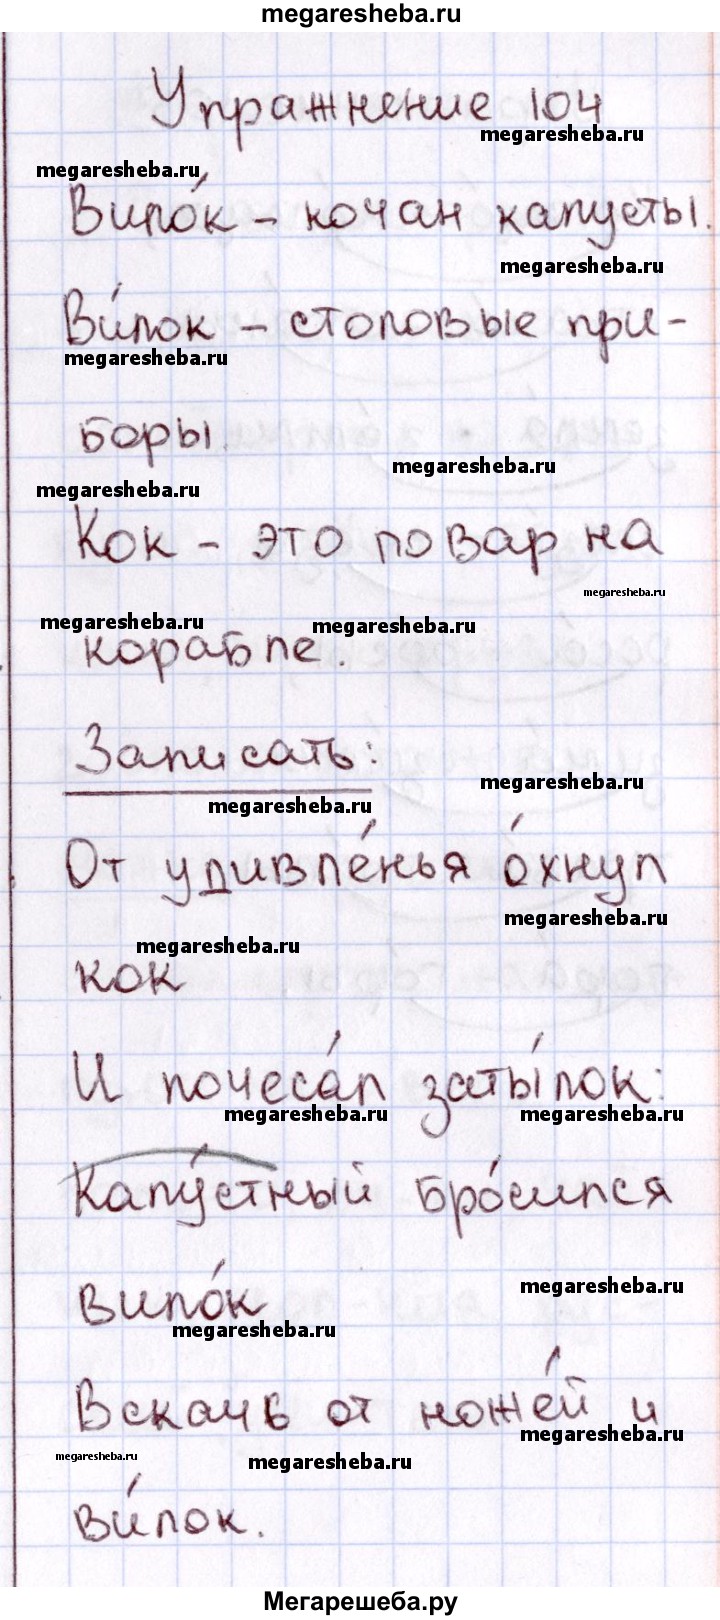 megaresheba.ru
Упражнение 104
megaresheba.ru
megaresheba.ru
Вило́к – кочан капусты.
megaresheba.ru
Ви́лок – столовые при-
megaresheba.ru
боры.
megaresheba.ru
megaresheba.ru
Кок – это повар на
megaresheba.ru
megaresheba.ru
megaresheba.ru
корабле.
Записать:
megaresheba.ru
megaresheba.ru
От удивле́нья о́хнул
megaresheba.ru
megaresheba.ru
кок
И почеса́л заты́лок:
megaresheba.ru
megaresheba.ru
Капу́стный бро́сился
megaresheba.ru
вило́к
megaresheba.ru
Вскачь от ноже́й и
megaresheba.ru
megaresheba.ru
megaresheba.ru
ви́лок.
Мегарешеба.ру